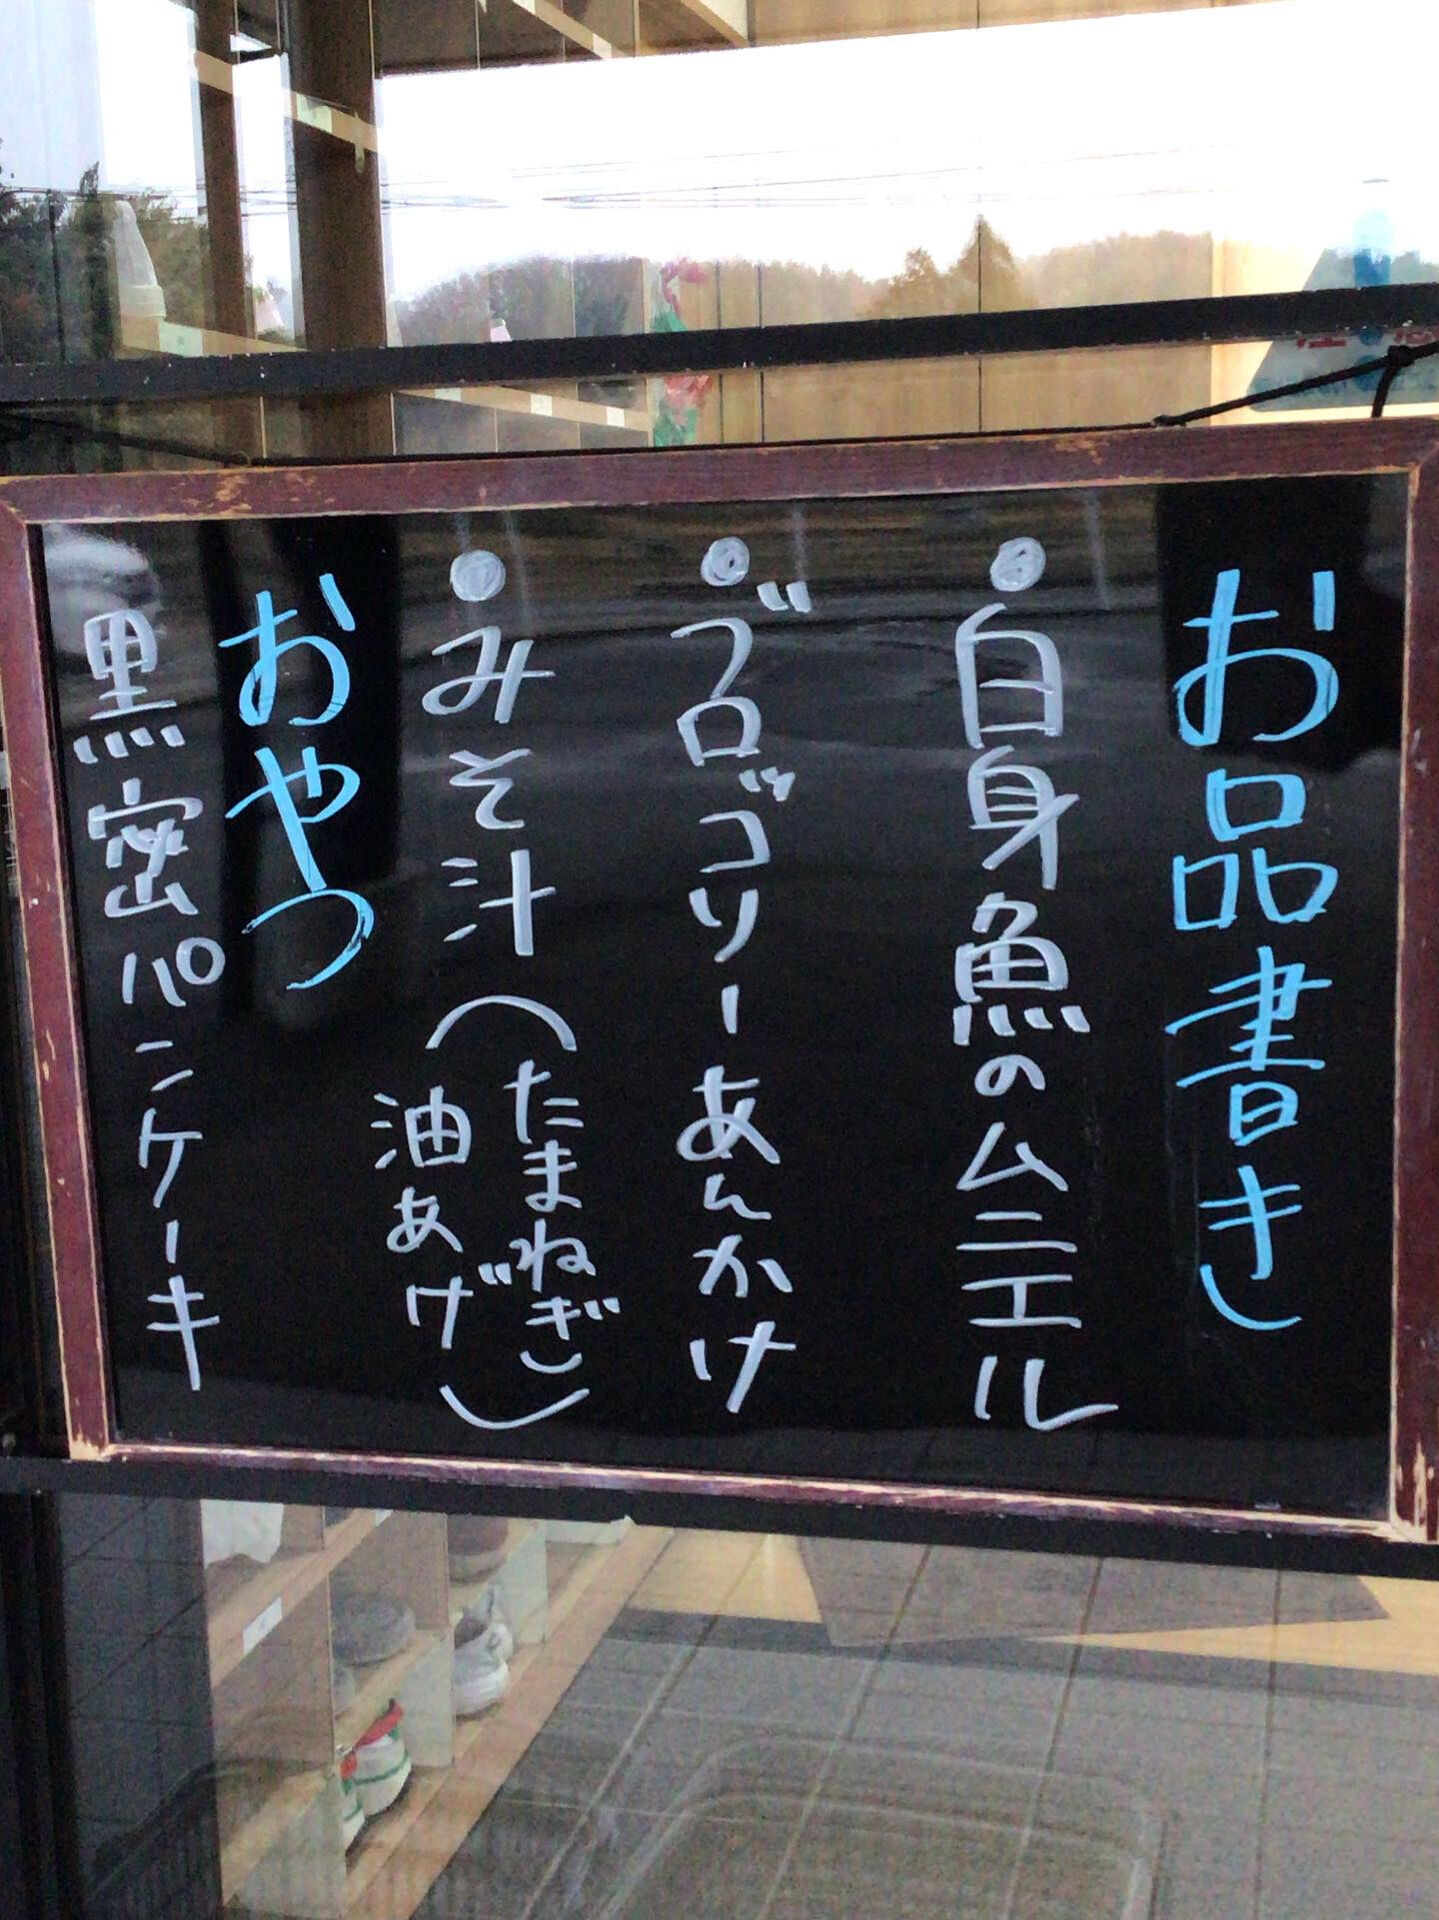 お品書き
●白身魚のムニエル
●ブロッコリーあんかけ
●みそ汁(たまねぎ
油あげ)
おやつ
黒密パンケーキ